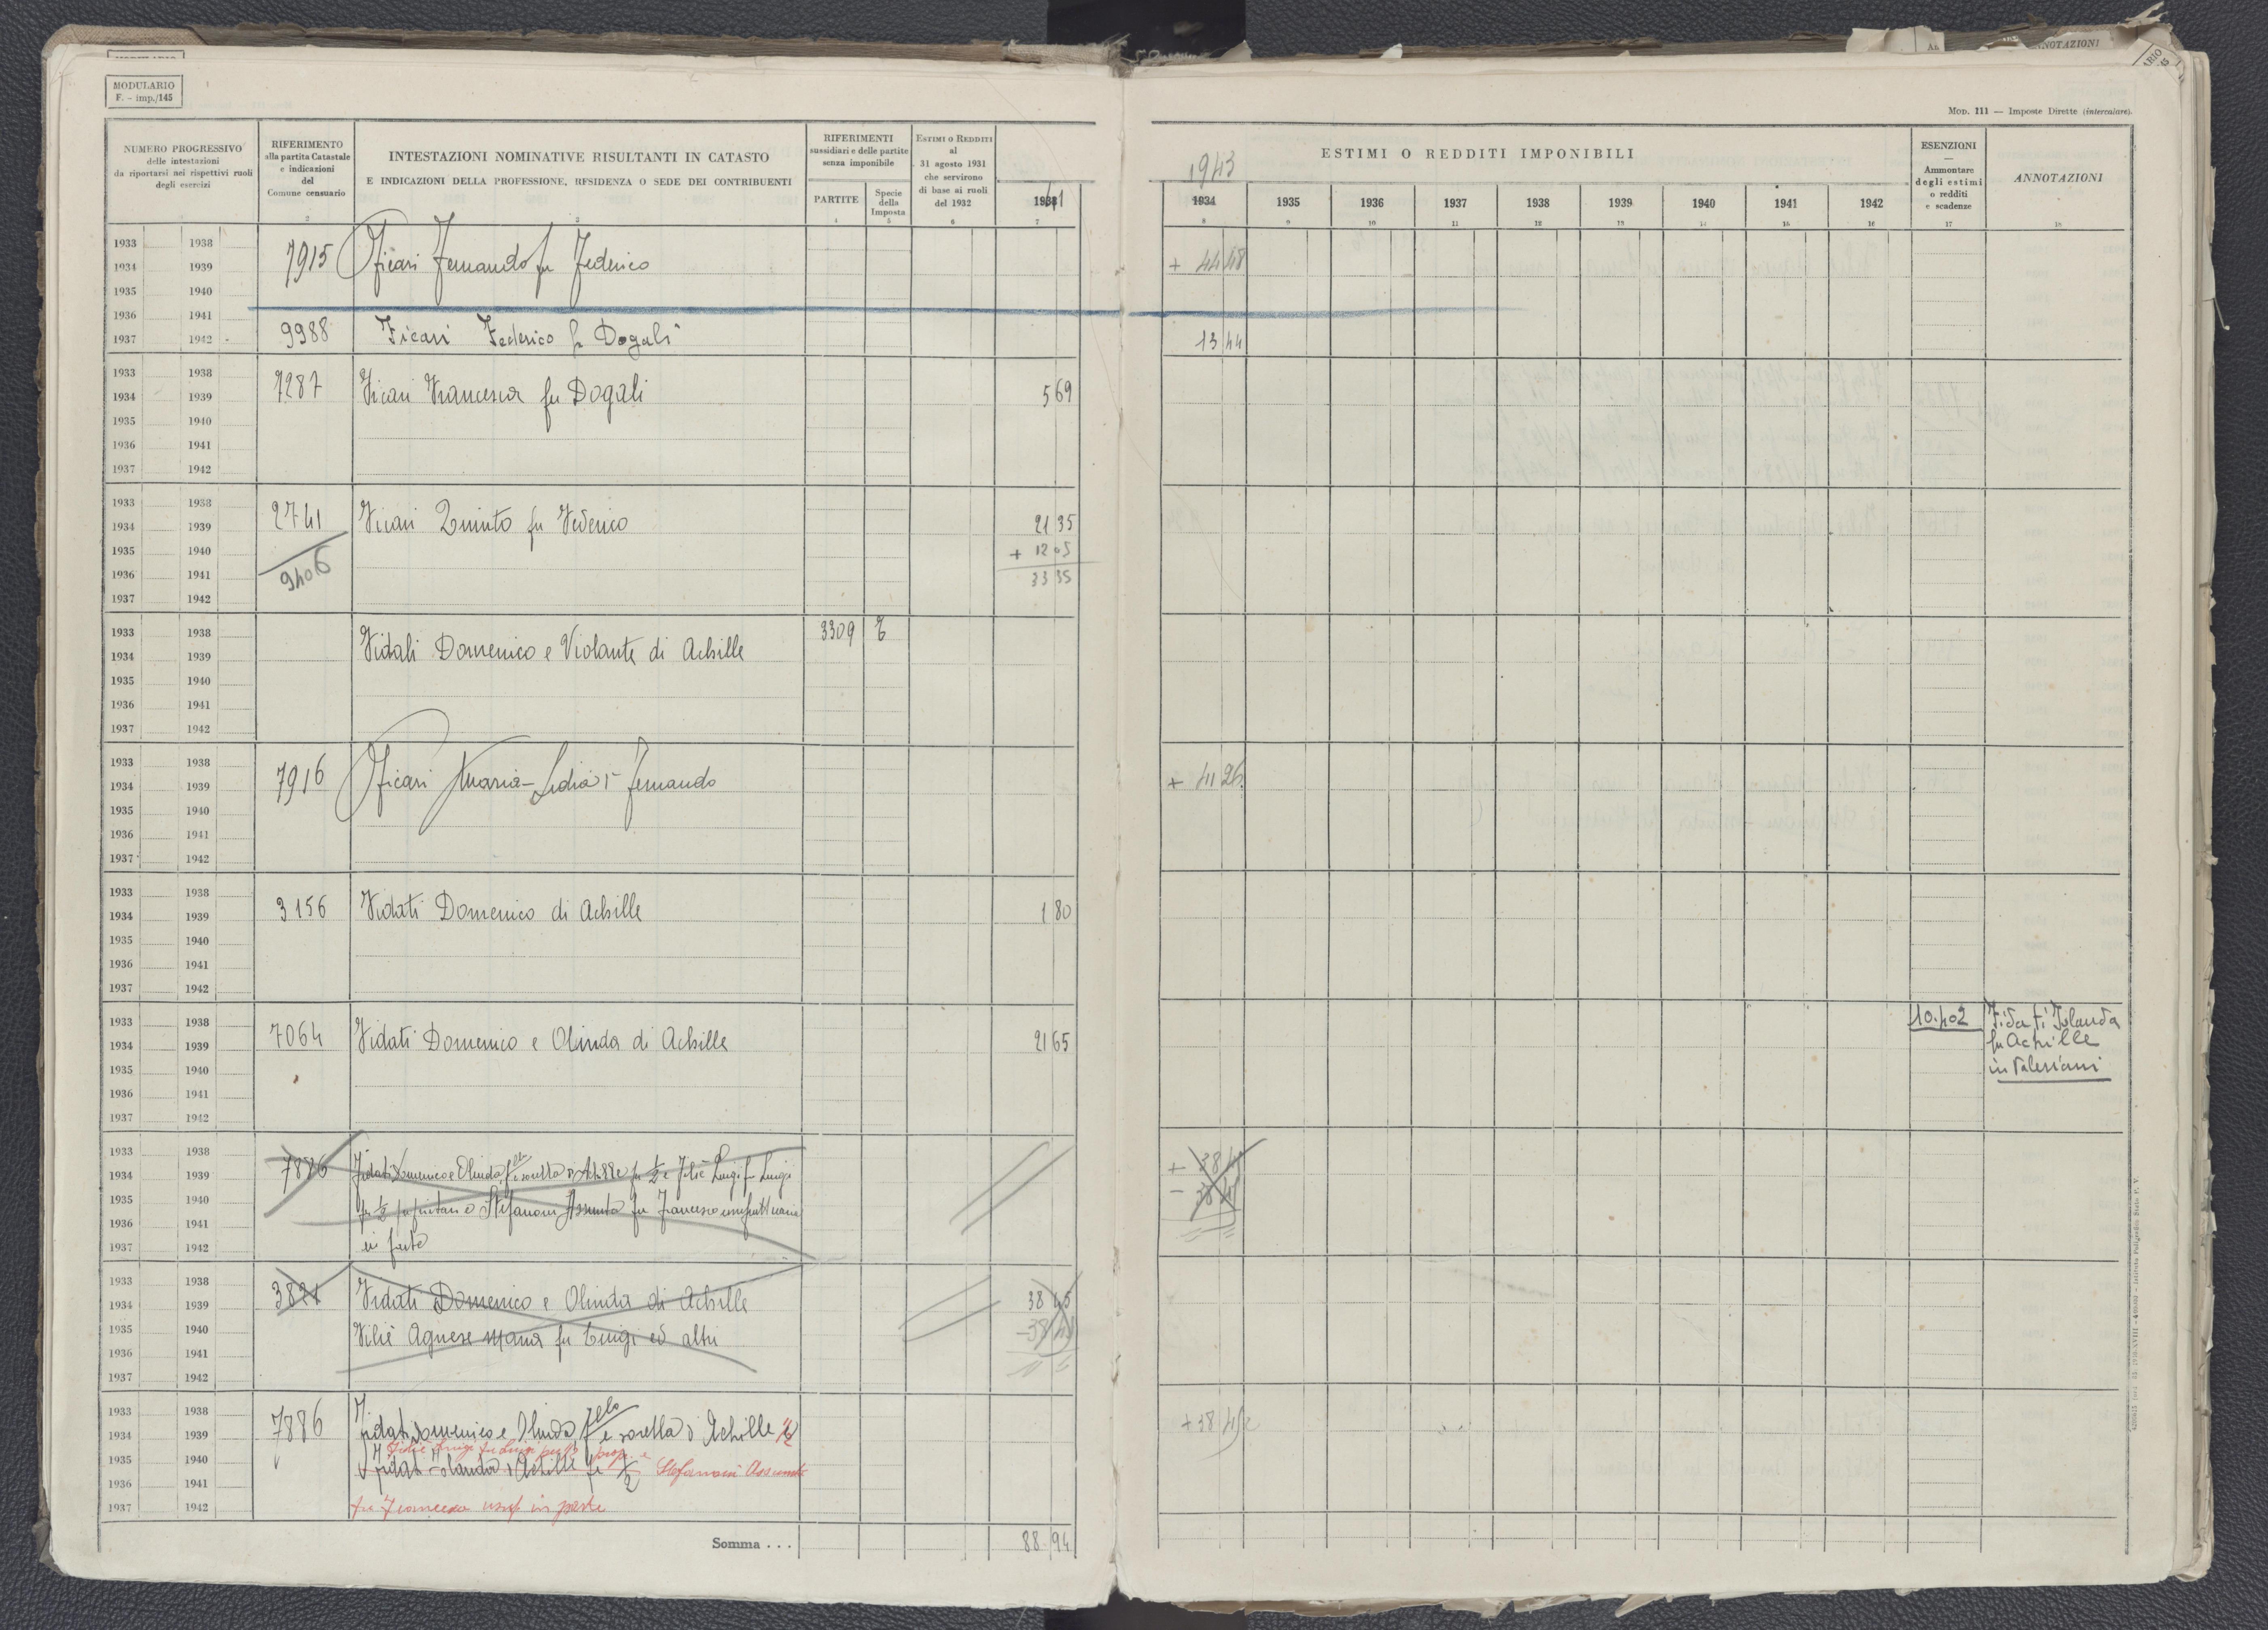 MODULARIO
F. - imp./145
MOD. 111 — Imposte Dirette (intercalare).
NUMERO PROGRESSIVO
delle intestazioni
da riportarsi nei rispettivi ruoli
degli esercizi
RIFERIMENTO
alla partita Catastale
e indicazioni
del
Comune censuario
INTESTAZIONI NOMINATIVE RISULTANTI IN CATASTO
E INDICAZIONI DELLA PROFESSIONE, RESIDENZA O SEDE DEI CONTRIBUENTI
RIFERIMENTI
sussidiari e delle partite
senza imponibile
PARTITE
Specie
della
Imposta
ESTIMI O REDDITI
al
31 agosto 1931
che servirono
di base ai ruoli
del 1932
1943
ESTIMI O REDDITI IMPONIBILI
1934 1935 1936 1937 1938 1939 1940 1941 1942
ESENZIONI
Ammontare
degli estimi
o redditi
e scadenze
ANNOTAZIONI
2 3 4 5 6 7 8 9 10 11 12 13 14 15 16 17 18
1933 1938
1934 1939 7915 Vicari Fernando fu Federico + 44 48
1935 1940
1936 1941
1937 1942 9988 Vicari Federico fu Dogali 13 44
1933 1938
1934 1939 7287 Vicari Francesca fu Dogali 5 69
1935 1940
1936 1941
1937 1942
1933 1938
1934 1939 2741 Vicari Quinto fu Federico 21 35
1935 1940 + 12 05
1936 1941 9406 33 35
1937 1942
1933 1938 3309
1934 1939 Vidali Domenico e Violante di Achille
1935 1940
1936 1941
1937 1942
1933 1938
1934 1939 7916 Vicari Maria-Lidia di Fernando + 41 26
1935 1940
1936 1941
1937 1942
1933 1938
1934 1939 3156 Vidati Domenico di Achille 1 80
1935 1940
1936 1941
1937 1942
1933 1938 10.402 Vidati Iolanda
1934 1939 7064 Vidati Domenico e Olinda di Achille 21 65 fu Achille
1935 1940 in Valeriani
1936 1941
1937 1942
1933 1938
1934 1939 7886 Vidati Domenico e Olinda f.llo e sorella di Achille per 1/2 e Viliè Luigi fu Luigi + 38 45
1935 1940 per 1/2 proprietari e Stefanoni Assunta fu Francesco usufruttuaria - 38 45
1936 1941
1937 1942 in parte
1933 1938
1934 1939 3821 Vidati Domenico e Olinda di Achille 38 45
1935 1940 Viliè Agnese Maria fu Luigi ed altri - 38 45
1936 1941
1937 1942
1933 1938
1934 1939 7886 Vidati Domenico e Olinda f.llo e sorella di Achille 1/2 + 38 45
Viliè Luigi fu Luigi per 1/2 prop. e
1935 1940 Vidati Iolanda di Achille per 1/2 Stefanoni Assunta
1936 1941
1937 1942 fu Francesco usuf. in parte
Somma . . . 88 94